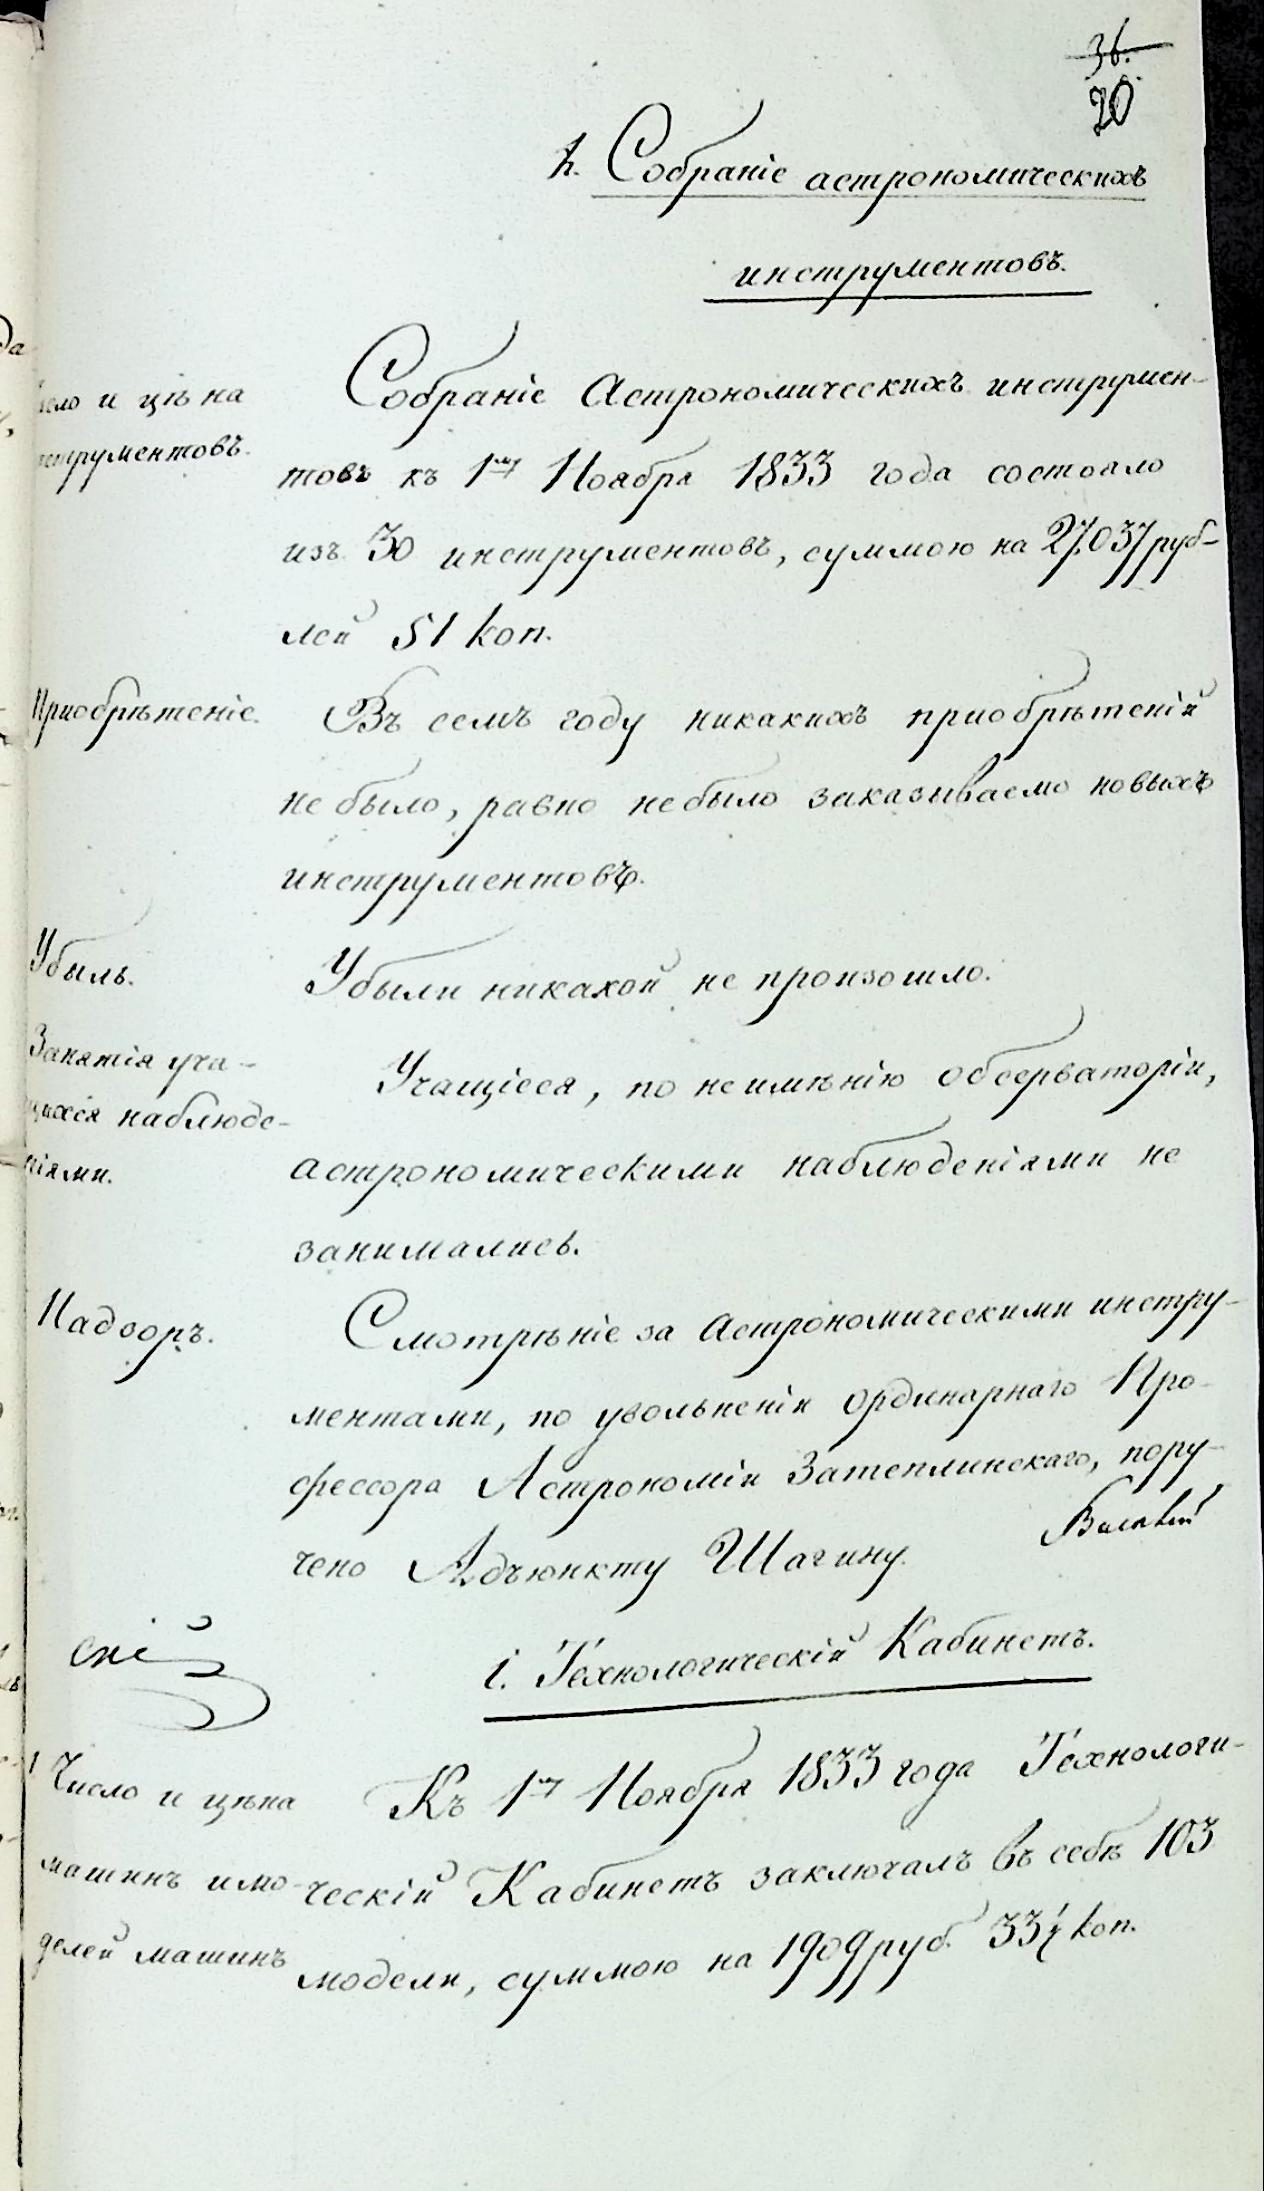 36.
20
h. Собраніе астрономическихъ
инструментовъ.
Число и цѣна
инструментовъ.
Собраніе Астрономическихъ инструмен-
товъ къ 1му Ноября 1833 года состояло
изъ 30 инструментовъ, суммою на 27.037 руб-
лей 51 коп.
Приобрѣтеніе.
Въ семъ году никакихъ приобрѣтеній
не было, равно не было заказываемо новыхъ
инструментовъ.
Убыль.
Убыли никакой не произошло.
Занятія уча-
щихся наблюде-
ніями.
Учащіеся, по неимѣнію обсерваторіи,
астрономическими наблюденіями не
занимались.
Надзоръ.
Смотрѣніе за Астрономическими инстру-
ментами, по увольненіи Ординарнаго Про-
фессора Астрономіи Затеплинскаго, пору-
чено Адъюнкту Шагину.
скій
i. Технологическій Кабинетъ.
Число и цѣна
машинъ и мо-
делей машинъ
Къ 1му Ноября 1833 года Технологи-
ческій Кабинетъ заключалъ въ себѣ 103
модели, суммою на 1909 руб. 33½ коп.